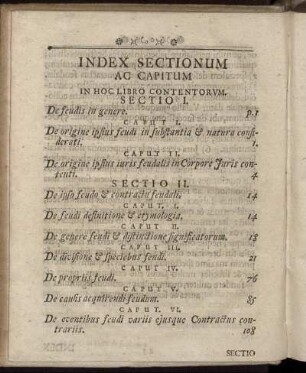 INDEX SECTIONUM
AC CAPITUM
IN HOC LIBRO CONTENTORVM.
SECTIO I.
De feudis in genere. p. 1
CAPUT I.
De origine ipsius feudi in substantia & natura consi-
derati. 1.
CAPUT II.
De origine ipsius iuris feudalis in Corpore Juris con-
tenti. 4
SECTIO II.
De ipso feudo & contractu feudali. 14
CAPUT. I.
De feudi definitione & etymologia. 14
CAPUT II.
De genere feudi & distinctione significatorum. 18
CAPUT III.
De divisione & speciebus feudi. 21
CAPUT IV.
De propriis feudi. 76
CAPUT V.
De causis acquirendi feudum. 85
CAPUT. VI.
De eventibus feudi variis ejusque Contractus con-
trariis. 108
SECTIO